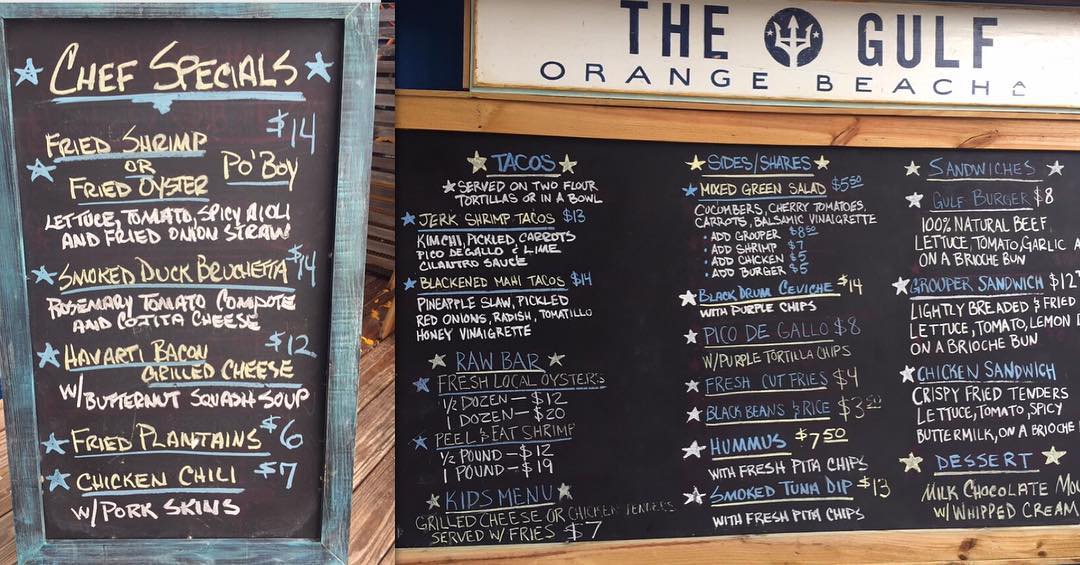 CHEF SPECIALS
FRIED SHRIMP $14
OR PO'BOY
FRIED OYSTER
LETTUCE, TOMATO, SPICY AIOLI
AND FRIED ONION STRAW
SMOKED DUCK BRUCHETTA $14
ROSEMARY TOMATO COMPOTE
AND COJITA CHEESE
HAVARTI BACON $12
GRILLED CHEESE
W/BUTTERNUT SQUASH SOUP
FRIED PLANTAINS $6
CHICKEN CHILI $7
W/PORK SKINS
THE GULF
ORANGE BEACH
TACOS
SERVED ON TWO FLOUR
TORTILLAS OR IN A BOWL
JERK SHRIMP TACOS $13
KIMCHI, PICKLED CARROTS
PICO DE GALLO & LIME
CILANTRO SAUCE
BLACKENED MAHI TACOS $14
PINEAPPLE SLAW, PICKLED
RED ONIONS, RADISH, TOMATILLO
HONEY VINAIGRETTE
RAW BAR
FRESH LOCAL OYSTER'S
1/2 DOZEN - $12
1 DOZEN - $20
PEEL & EAT SHRIMP
1/2 POUND - $12
1 POUND - $19
KIDS MENU
GRILLED CHEESE OR CHICKEN TENDERS
SERVED W/ FRIES $7
SIDES/SHARES
MIXED GREEN SALAD $5.50
CUCUMBERS, CHERRY TOMATOES,
CARROTS, BALSAMIC VINAIGRETTE
• ADD GROUPER $8.50
• ADD SHRIMP $7
• ADD CHICKEN $5
• ADD BURGER $5
BLACK DRUM CEVICHE $14
WITH PURPLE CHIPS
PICO DE GALLO $8
W/PURPLE TORTILLA CHIPS
FRESH CUT FRIES $4
BLACK BEANS & RICE $3.50
HUMMUS $7.50
WITH FRESH PITA CHIPS
SMOKED TUNA DIP $13
WITH FRESH PITA CHIPS
SANDWICHES
GULF BURGER $8
100% NATURAL BEEF
LETTUCE, TOMATO, GARLIC A
ON A BRIOCHE BUN
GROUPER SANDWICH $12
LIGHTLY BREADED & FRIED
LETTUCE, TOMATO, LEMON
ON A BRIOCHE BUN
CHICKEN SANDWICH
CRISPY FRIED TENDERS
LETTUCE, TOMATO, SPICY
BUTTERMILK, ON A BRIOCHE
DESSERT
MILK CHOCOLATE MOU
W/WHIPPED CREAM